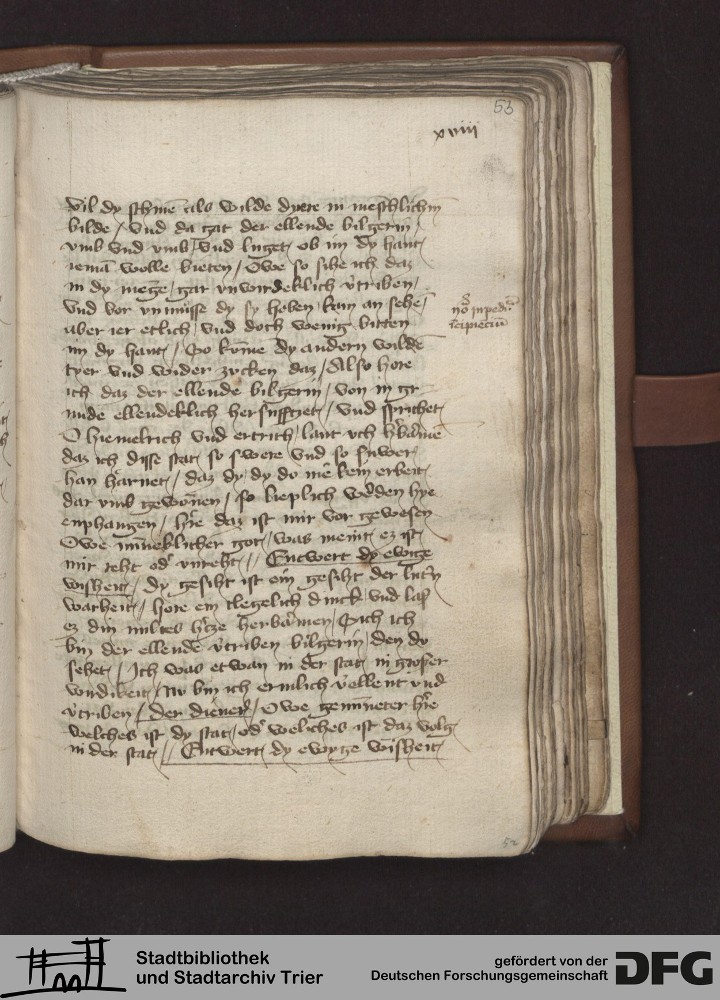 53
xviii
vil dy schinē als wilde dyere in meschlichen
bilde / vnd da gat der ellende bilgerin /
vmb vnd vmb / vnd luget / ob im dy hant
iemā wolle bieten / Owe so sihe ich daz
in dy mēge / gar vnwirdeklich v̓triben /
vnd vor vnmüsse dy sy heben / kum an sehē /
aber ier etlich / vnd doch wenig bitten
im dy hant / So kōme dy andern wilde
tyer vnd wider zucken daz / Also hore
ich daz der ellende bilgerin / von in gr
nude ellendeklich hersufftzet / vnd sprichet
O hiemelrich vnd ertrich / lant vch h̓bāme
daz ich disse stat / so swere vnd so suwer
han h̓arnet / daz dy dy do mē kein erbeit
dar vmb gewōnen / so lieplich w̓den hye
enphangen / h̓re daz ist mir vor gewesen
Owe mīneklicher got / was meint ez ist
mir reht od̓ vnreht // Entwert dy ewige
wisheit / Dy gesiht ist ein gesiht der lut̓n
warheit / Hore ein clegelich dinck / vnd las
ez din miltes h̓tze herbārmen / Sich ich
bin der ellende v̓triben bilgerin / den du
sehet / Ich was etwan in der stat / in grosser
wirdikeit / Nv bin ich ermlich v̓ellent vnd
v̓triben / Der diener / Owe gemīneter h̓re
welches ist dy stat / od̓ weliches ist daz volg
in der stat // Entwert dy ewyge wisheit
52
Stadtbibliothek
und Stadtarchiv Trier
gefördert von der
Deutschen Forschungsgemeinschaft
DFG